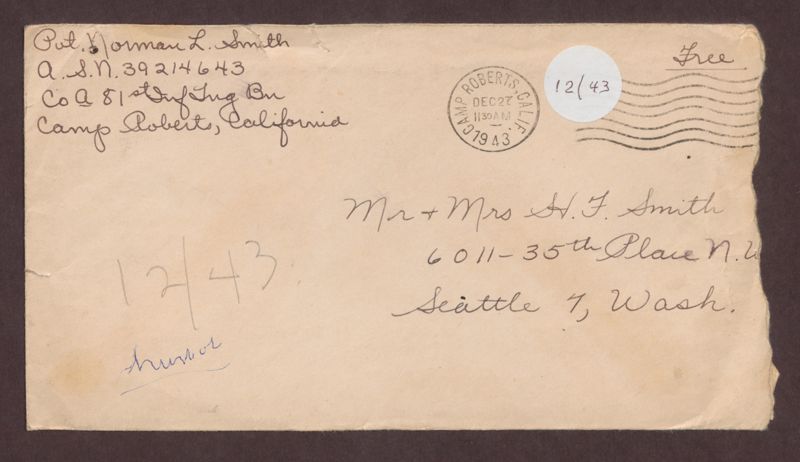 Pvt. Norman L. Smith
A.S.N. 39214643
Co A 81st Inf Tng Bn
Camp Roberts, California
Free
CAMP ROBERTS, CALIF.
DEC 27
11 30 AM
1943
12/43
Mr + Mrs H. F. Smith
6011-35th Place N.W
Seattle 7, Wash.
12/43